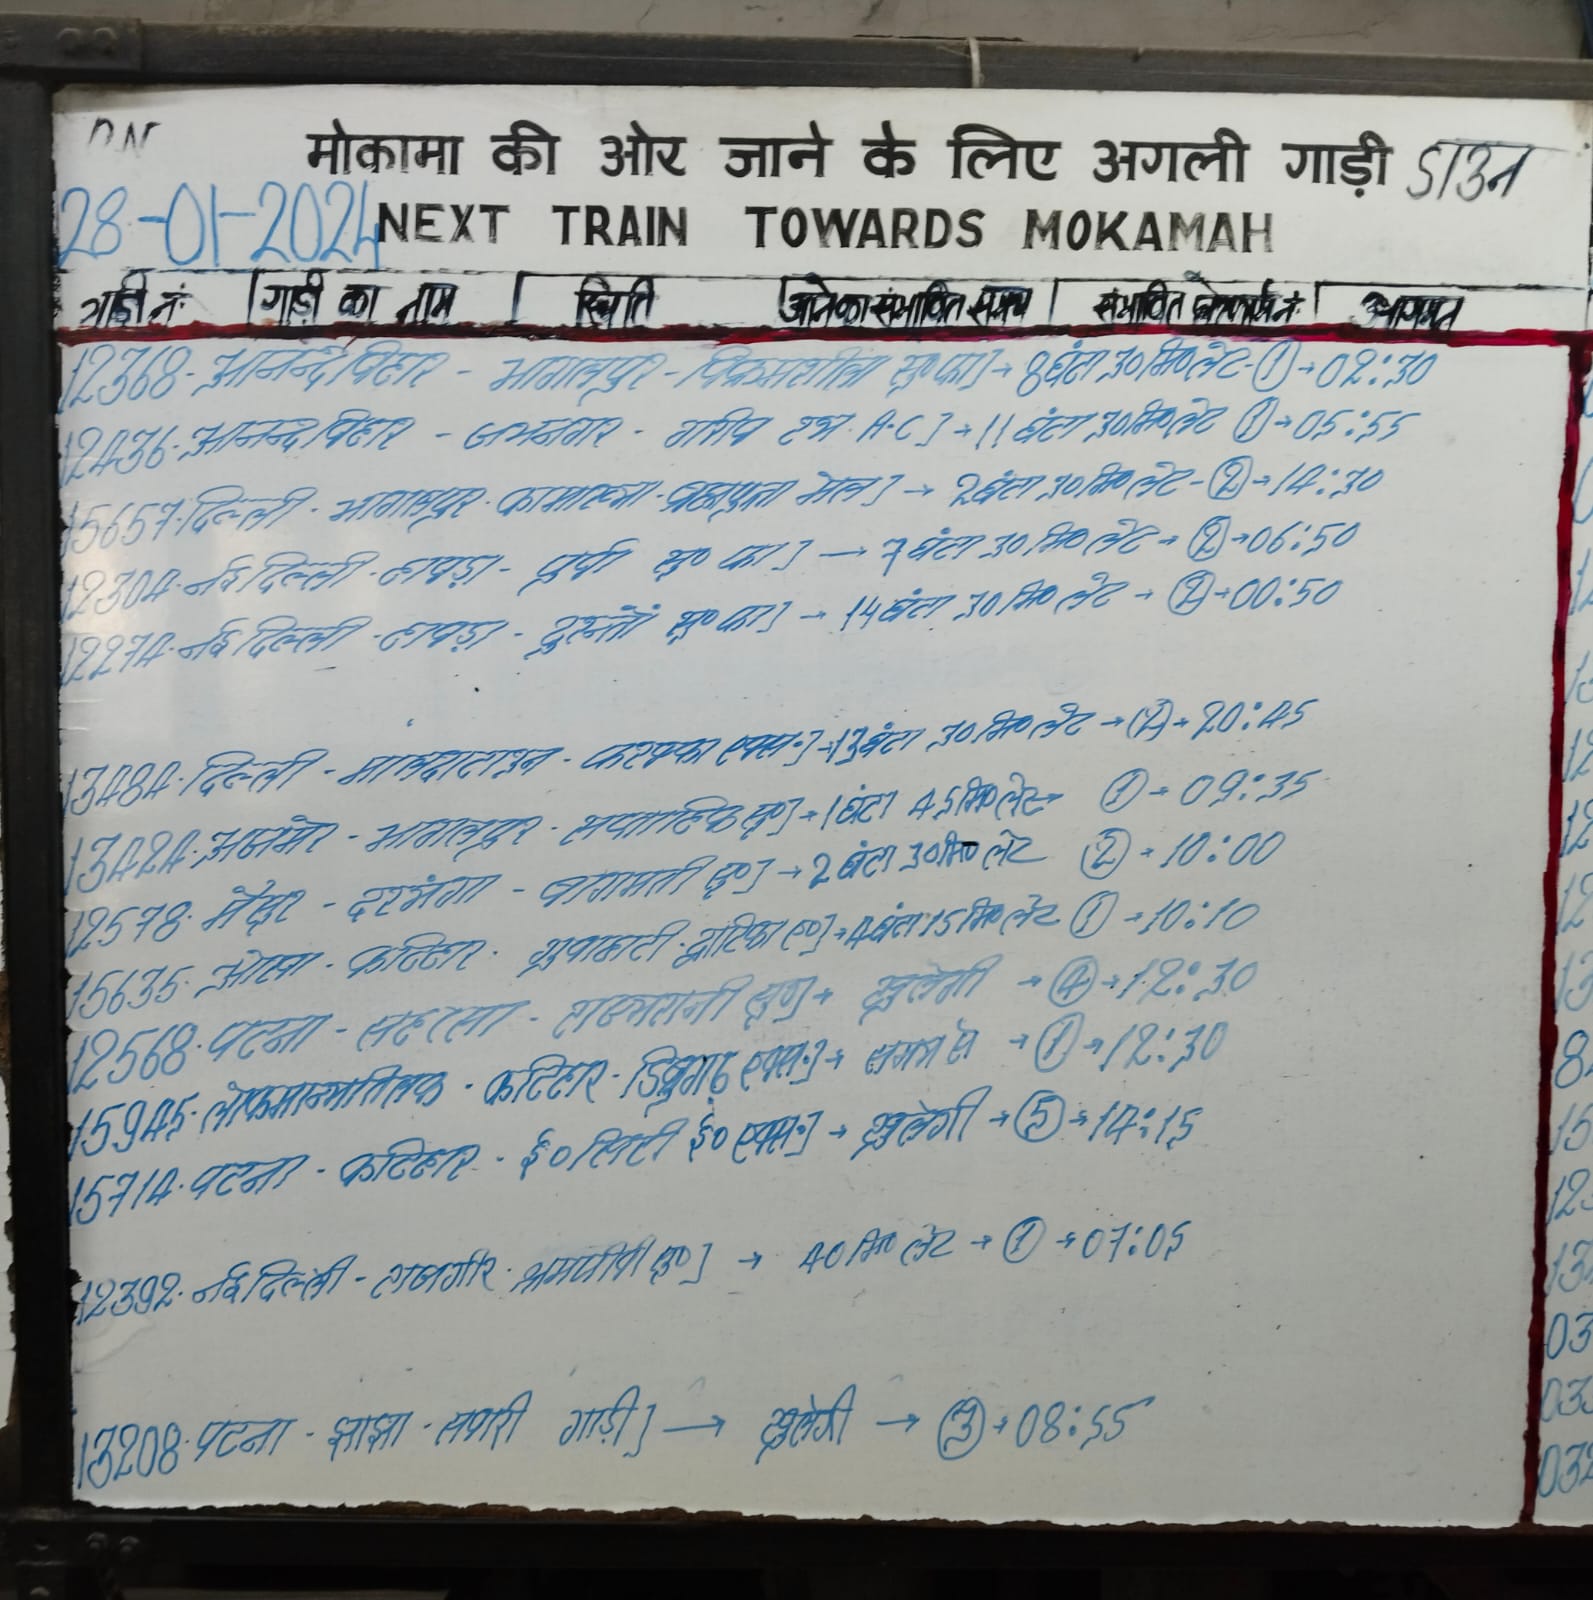 DN
मोकामा की ओर जाने के लिए अगली गाड़ी डाउन
28-01-2024 NEXT TRAIN TOWARDS MOKAMAH
गाड़ी नं: गाड़ी का नाम स्थिति आनेका संभावित समय संभावित प्लेटफार्म नं: आगमन
12368. आनन्द विहार - भागलपुर - विक्रमशीला सु० फा] → 8 घंटा 30 मि० लेट - ① → 02:30
12436. आनन्द विहार - जयनगर - गरीब रथ A.C] → 11 घंटा 30 मि० लेट ① → 05:55
15657. दिल्ली - भागलपुर - कामाख्या - ब्रह्मपुत्रा मेल] → 2 घंटा 30 मि० लेट - ② → 14:30
12304. नई दिल्ली - हावड़ा - पूर्वा सु० फा] → 7 घंटा 30 मि० लेट → ② → 06:50
12274. नई दिल्ली - हावड़ा - दुरन्तो सु० फा] → 14 घंटा 30 मि० लेट → ② → 00:50
13484. दिल्ली - मालदा टाउन - फरक्का एक्स०] → 13 घंटा 30 मि० लेट → ② → 20:45
13424. अजमेर - भागलपुर - सप्ताहिक ए०] → 1 घंटा 45 मि० लेट → ① → 09:35
12578. मैसूर - दरभंगा - बागमती ए०] → 2 घंटा 30 मि० लेट ② → 10:00
15635. ओखा - कटिहार - गुवाहाटी - द्वारिका ए०] → 4 घंटा 15 मि० लेट ① → 10:10
12568. पटना - सहरसा - राज्यरानी सु० → खुलेगी → ④ → 12:30
15945. लोकमान्यतिलक - कटिहार - डिब्रुगढ़ एक्स०] → समय से → ① → 12:30
15714. पटना - कटिहार - ई० सिटी ई० एक्स०] → खुलेगी → ⑤ → 14:15
12392. नई दिल्ली - राजगीर - श्रमजीवी सु०] → 40 मि० लेट → ① → 07:05
13208. पटना - झाझा - सवारी गाड़ी] → खुलेगी → ③ → 08:55